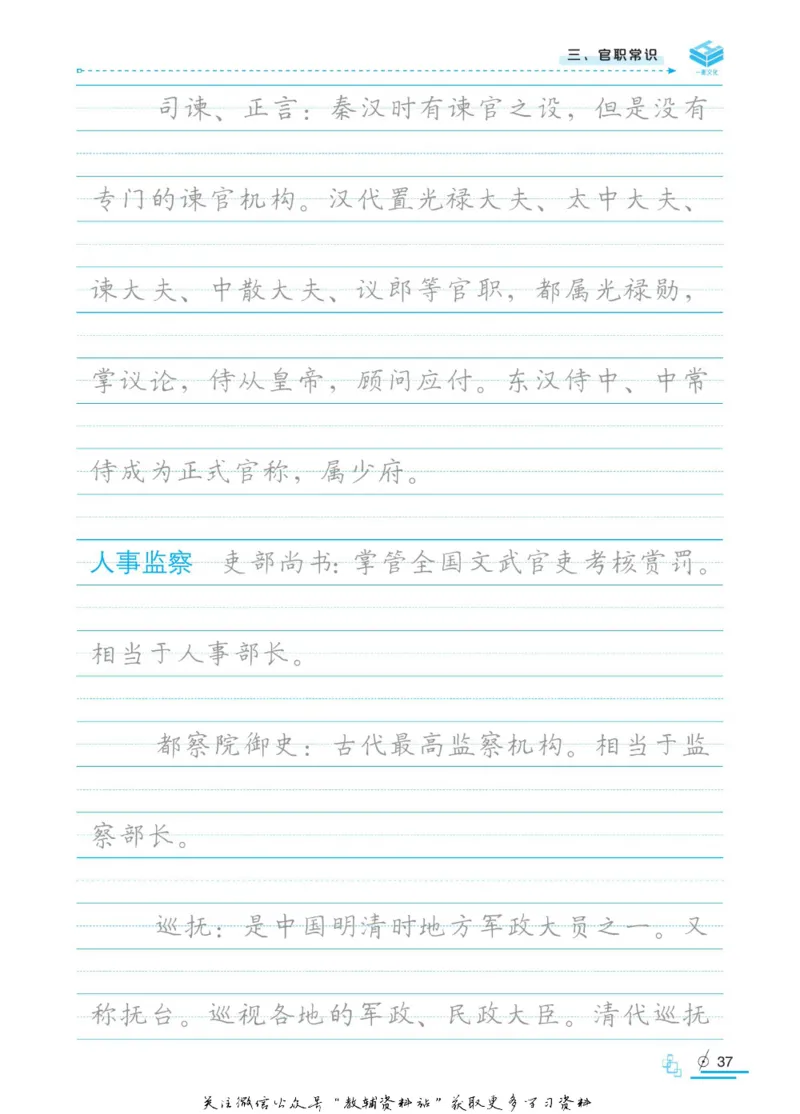 三、官职常识
一本文化
司谏、正言：秦汉时有谏官之设，但是没有
专门的谏官机构。汉代置光禄大夫、太中大夫、
谏大夫、中散大夫、议郎等官职，都属光禄勋，
掌议论，侍从皇帝，顾问应付。东汉侍中、中常
侍成为正式官称，属少府。
人事监察 吏部尚书：掌管全国文武官吏考核赏罚。
相当于人事部长。
都察院御史：古代最高监察机构。相当于监
察部长。
巡抚：是中国明清时地方军政大员之一。又
称抚台。巡视各地的军政、民政大臣。清代巡抚
37
关注微信公众号"教辅资料站"获取更多学习资料